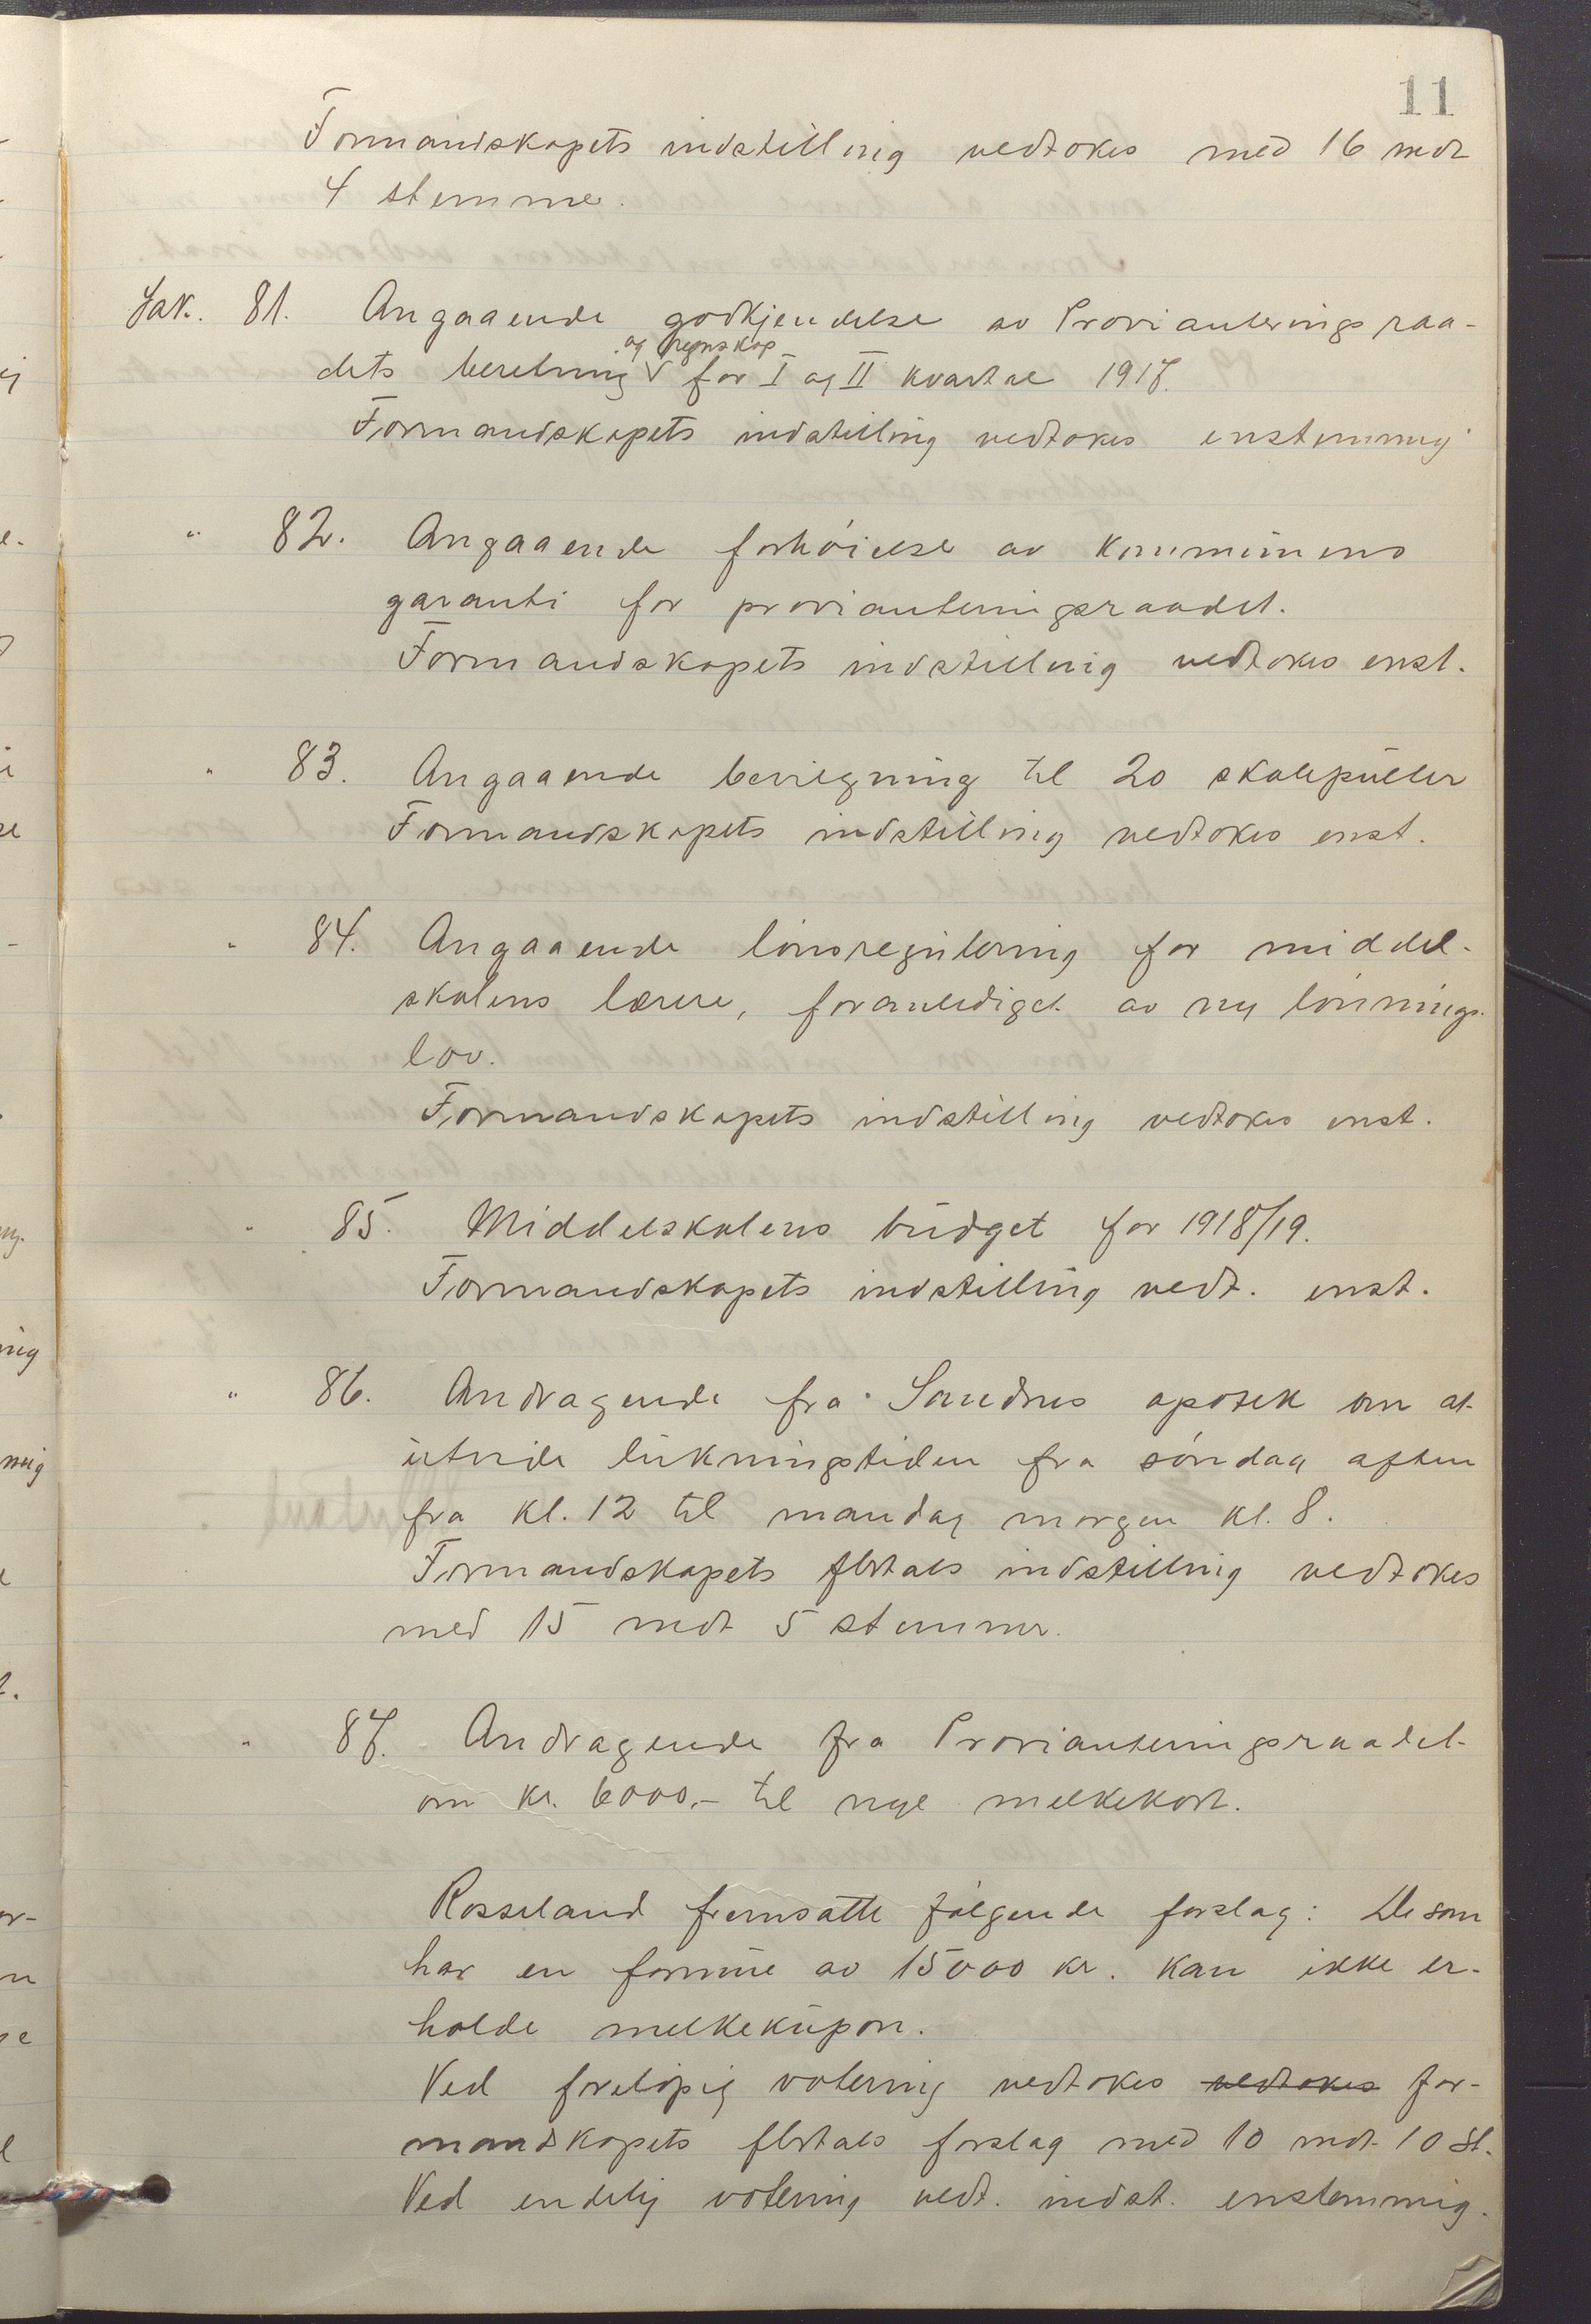 11
Formandskapets indstilling vedtokes med 16 mot
4 stemmer.
Sak. 81. Angaaende godkjendelse av Provianteringsraa-
dets beretning og regnskap for I og II kvartal 1917.
Formandskapets indstilling vedtokes enstemmig
" 82. Angaaende forhöielse av kommunens
garanti for provianteringsraadet.
Formandskapets indstilling vedtokes enst.
" 83. Angaaende bevilgning til 20 skolepulter
Formandskapets indstilling vedtokes enst.
" 84. Angaaende lönsregulering for middel-
skolens lærere, foranlediget av ny lönnings-
lov.
Formandskapets indstilling vedtokes enst.
" 85. Middelskolens budget for 1918/19.
Formandskapets indstilling vedt. enst.
" 86. Andragende fra Sandnes apotek om at
utvide lukningstiden fra söndag aften
fra kl. 12 til mandag morgen kl. 8.
Formandskapets flertals indstilling vedtokes
med 15 mot 5 stemmer.
" 87. Andragende fra Provianteringsraadet
om kr. 6000,- til nye melkekort.
Rosseland fremsatte fölgende forslag: De som
har en formue av 15000 kr. kan ikke er-
holde melkekupon.
Ved forelöpig votering vedtokes vedtokes for-
mandskapets flertals forslag med 10 mot 10 st.
Ved endelig votering vedt. indst. enstemmig.